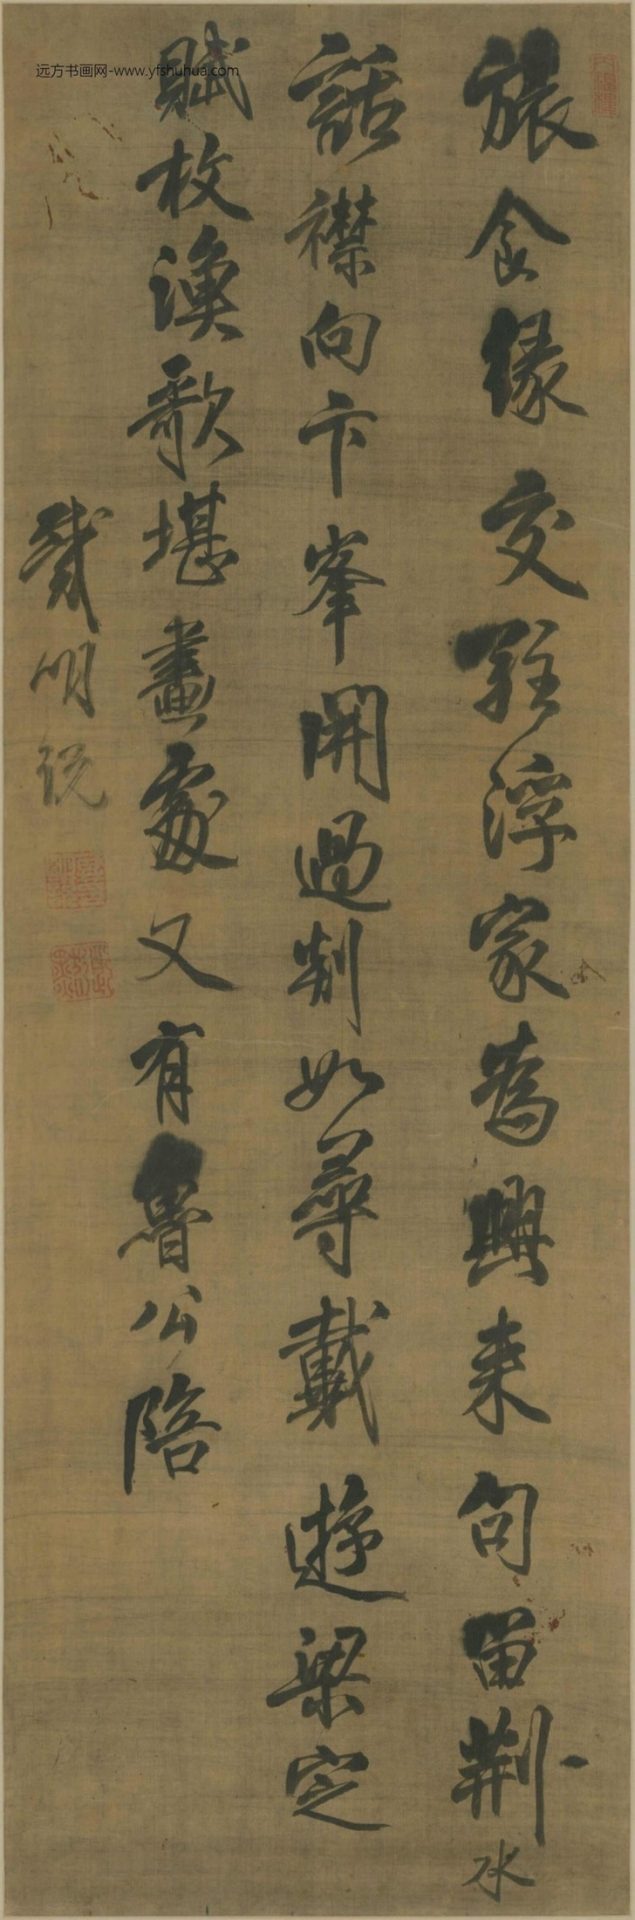 远方书画网-www.yfshuhua.com
旅食緣交駐浮家為興来句留荆水
話襟向卞峯開過剡如尋戴遊梁定
賦枚漁歌堪畫處又有魯公陪
戴明説